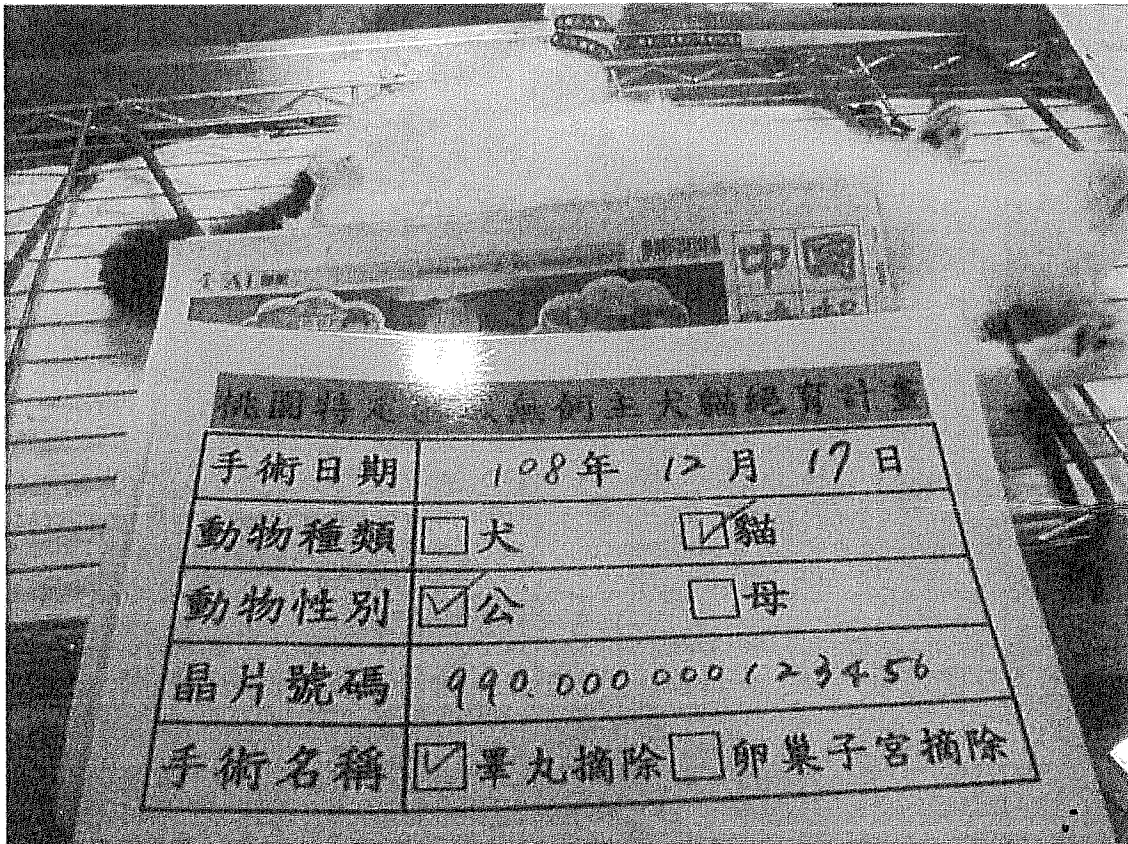 中國
桃園特定區域無飼主犬貓絕育計畫
手術日期 108年 12月 17日
動物種類 □犬 ☑貓
動物性別 ☑公 □母
晶片號碼 990.000000123456
手術名稱 ☑睪丸摘除 □卵巢子宮摘除